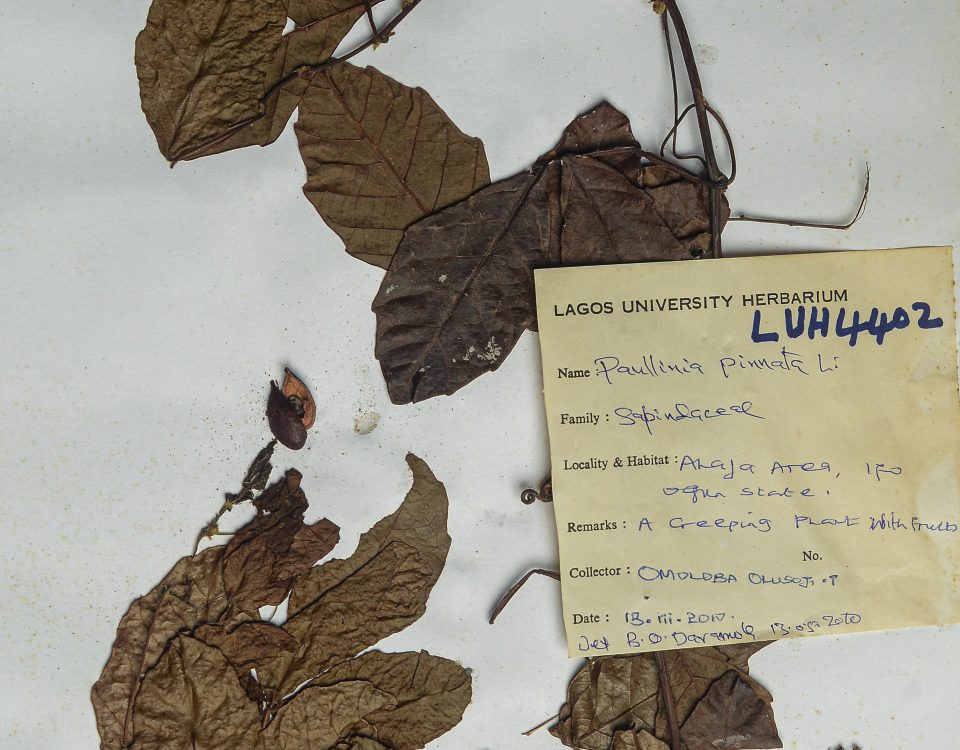 LAGOS UNIVERSITY HERBARIUM
LUH4402
Name : Paullinia pinnata L:
Family : Sapindaceae
Locality & Habitat : Area,
ogun state.
Remarks : A Creeping Plant With fruits
No.
Collector : OMOLOBA OLUSOJI
Date : 13. 2010.
Det B. O. Daramola 13. 2010